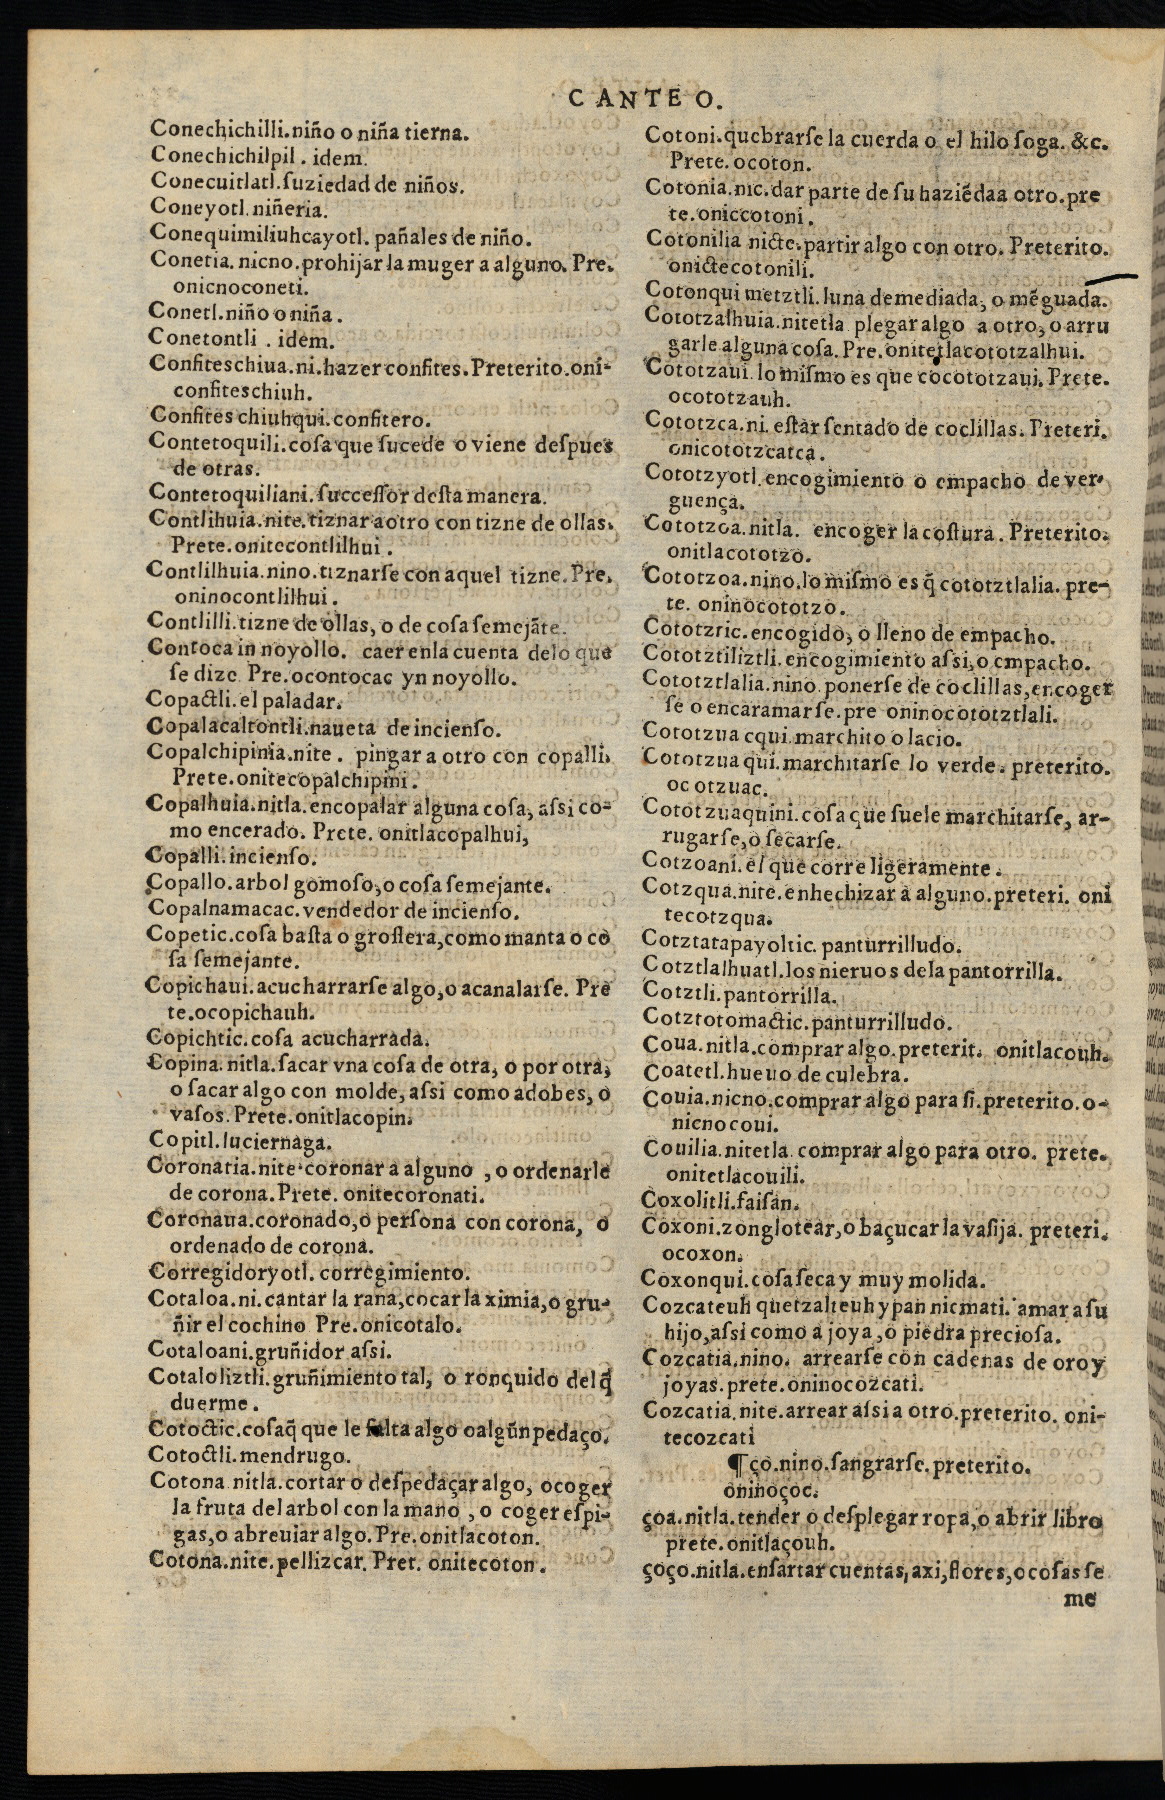 C ANTE O.
Conechichilli.niño o niña tierna.
Conechichilpil . idem.
Conecuitlatl.ſuziedad de niños.
Coneyotl.niñeria.
Conequimiliuhcayotl. pañales de niño.
Conetia. nicno.prohijar la muger a alguno. Pre.
onicnoconeti.
Conetl.niño o niña.
Conetontli . idem.
Confiteschiua.ni.hazer confites.Preterito.oni-
confiteschiuh.
Confites chiuhqui.confitero.
Contetoquili.coſa que ſucede o viene deſpues
de otras.
Contetoquiliani.ſucceſſor deſta manera.
Contlihuia.nite.tiznar a otro con tizne de ollas.
Prete.onitecontlilhui .
Contlilhuia.nino.tiznarſe con aquel tizne.Pre.
oninocontlilhui.
Contlilli.tizne de ollas, o de coſa ſemejãte.
Contoca in noyollo. caer enla cuenta delo que
ſe dize. Pre.ocontocac yn noyollo.
Copactli.el paladar.
Copalacaltontli.naueta de incienſo.
Copalchipinia.nite . pingar a otro con copalli.
Prete.onitecopalchipini.
Copalhuia.nitla.encopalar alguna coſa, aſsi co-
mo encerado. Prete. onitlacopalhui,
Copalli.incienſo.
Copallo.arbol gomoſo,o coſa ſemejante.
Copalnamacac.vendedor de incienſo.
Copetic.coſa baſta o groſſera,como manta o co
ſa ſemejante.
Copichaui.acucharrarſe algo,o acanalarſe. Pre
te.ocopichauh.
Copichtic.coſa acucharrada.
Copina.nitla.ſacar vna coſa de otra, o por otra,
o ſacar algo con molde, aſsi como adobes, o
vaſos.Prete.onitlacopin.
Copitl.luciernaga.
Coronatia.nite.coronar a alguno , o ordenarle
de corona.Prete. onitecoronati.
Coronaua.coronado,o perſona con corona, o
ordenado de corona.
Corregidoryotl. corregimiento.
Cotaloa.ni.cantar la rana,cocar la ximia,o gru-
ñir el cochino Pre.onicotalo.
Cotaloani.gruñidor aſsi.
Cotaloliztli.gruñimiento tal, o ronquido del q̃
duerme.
Cotoctic.coſaq̃ que le falta algo oalgũn pedaço.
Cotoctli.mendrugo.
Cotona.nitla.cortar o deſpedaçar algo, o coger
la fruta del arbol con la mano , o coger eſpi-
gas,o abreuiar algo.Pre.onitlacoton.
Cotona.nite.pellizcar. Pret. onitecoton .
Cotoni.quebrarſe la cuerda o el hilo ſoga. &c.
Prete.ocoton.
Cotonia.nic.dar parte de ſu haziẽda a otro.pre
te.oniccotoni.
Cotonilia nicte.partir algo con otro. Preterito.
onictecotonili.
Cotonqui metztli.luna demediada, o mẽguada.
Cototzalhuia.nitetla plegar algo a otro, o arru
garle alguna coſa. Pre.onitetlacototzalhui.
Cototzaui.lo miſmo es que cocototzaui. Prete.
ocototzauh.
Cototzca.ni.eſtar ſentado de coclillas. Preteri.
onicototzcatca.
Cototzyotl.encogimiento o empacho de ver-
guença.
Cototzoa.nitla. encoger la coſtura. Preterito.
onitlacototzo.
Cototzoa.nino.lo miſmo es q̃ cototztlalia. pre-
te. oninocototzo.
Cototztic.encogido, o lleno de empacho.
Cototztiliztli.encogimiento aſsi,o empacho.
Cototztlalia.nino.ponerſe de coclillas,encoger
ſe o encaramarſe.pre oninocototztlali.
Cototzua cqui.marchito o lacio.
Cototzua qui.marchitarſe lo verde. preterito.
oc otzuac.
Cototzuaquini.coſa que ſuele marchitarſe, ar-
rugarſe,o ſecarſe.
Cotzoani.el que corre ligeramente.
Cotzqua.nite.enhechizar a alguno.preteri. oni
tecotzqua.
Cotztatapayoltic. panturrilludo.
Cotztlalhuatl.los nieruos dela pantorrilla.
Cotztli.pantorrilla.
Cotztotomactic.panturrilludo.
Coua.nitla.comprar algo.preterit. onitlacouh.
Coatetl.hueuo de culebra.
Couia.nicno.comprar algo para ſi.preterito.o-
nicnocoui.
Couilia.nitetla.comprar algo para otro. prete.
onitetlacouili.
Coxolitli.faiſan.
Coxoni.zonglotear,o baçucar la vaſija. preteri.
ocoxon.
Coxonqui.coſa ſeca y muy molida.
Cozcateuh quetzalteuh ypan nicmati. amar a ſu
hijo,aſsi como a joya ,o piedra precioſa.
Cozcatia.nino. arrearſe con cadenas de oro y
joyas.prete.oninocozcati.
Cozcatia.nite.arrear aſsi a otro.preterito. oni-
tecozcati
¶ço.nino.ſangrarſe.preterito.
oninoçoc.
çoa.nitla.tender o deſplegar ropa,o abrir libro
prete.onitlaçouh.
çoço.nitla.enſartar cuentas, axi,flores,o coſas ſe
me